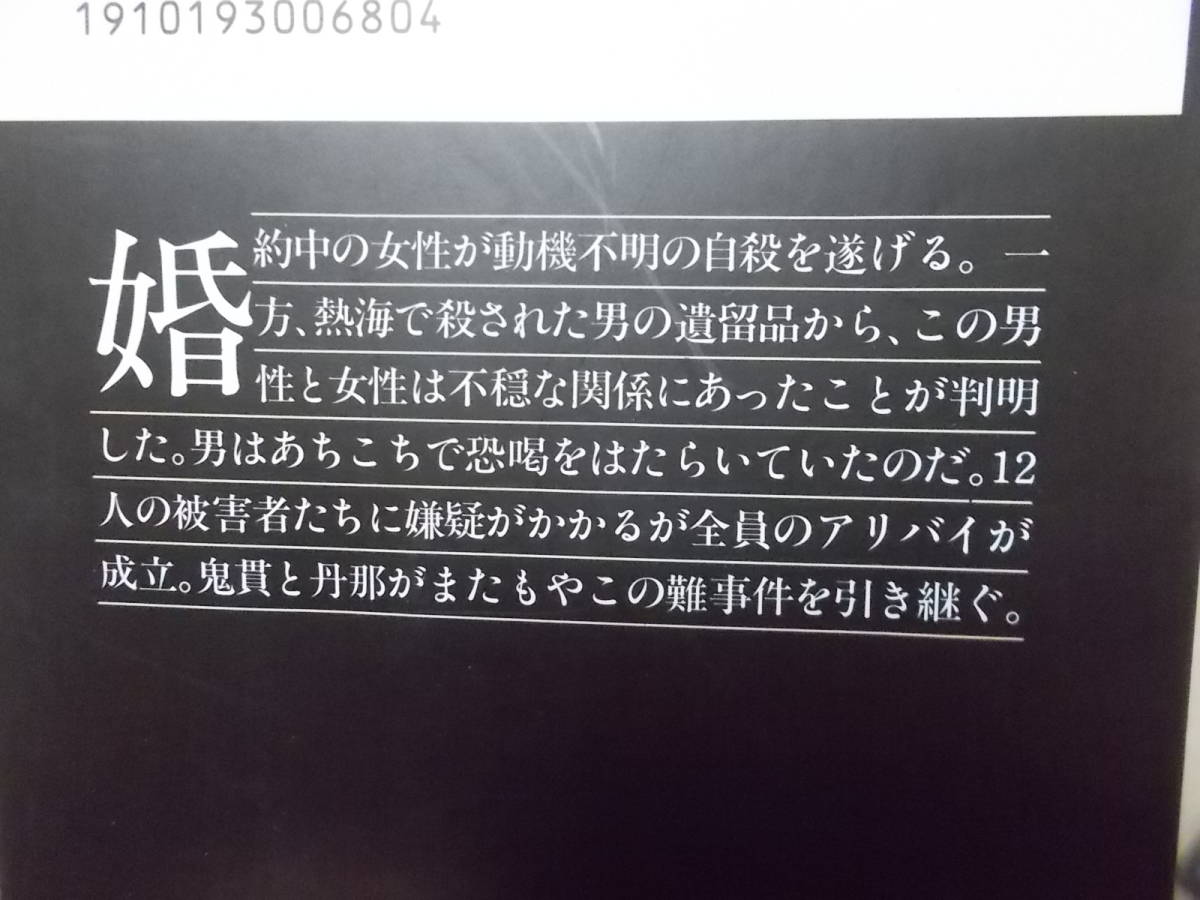 1910193006804
婚約中の女性が動機不明の自殺を遂げる。一
方、熱海で殺された男の遺留品から、この男
性と女性は不穏な関係にあったことが判明
した。男はあちこちで恐喝をはたらいていたのだ。12
人の被害者たちに嫌疑がかかるが全員のアリバイが
成立。鬼貫と丹那がまたもやこの難事件を引き継ぐ。